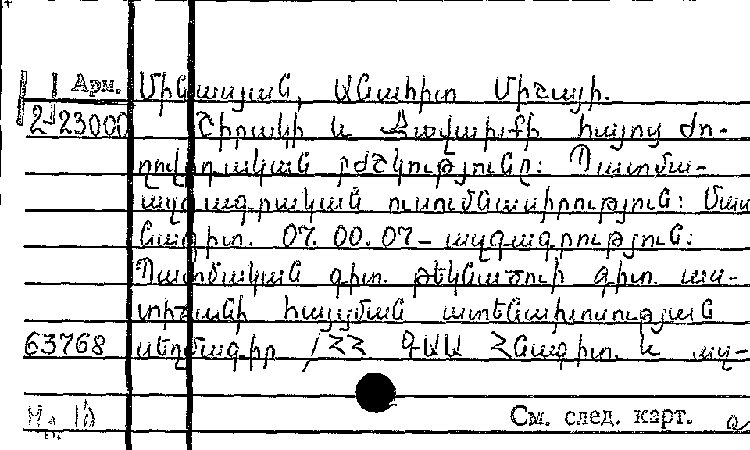 Арм. Մինասյան, Անահիտ Միշայի.
2-23000 Շիրակի և Ջավախքի հայոց ժո-
ղովրդական բժշկությունը: Պատմա-
ազգագրական ուսումնասիրություն: Մաս
նագիտ. 07. 00. 07- ազգագրություն:
Պատմական գիտ. թեկնածուի գիտ. աս-
տիճանի հայցման ատենախոսության
63768 սեղմագիր /ՀՀ ԳԱԱ Հնագիտ. և ազ-
См. след. карт.